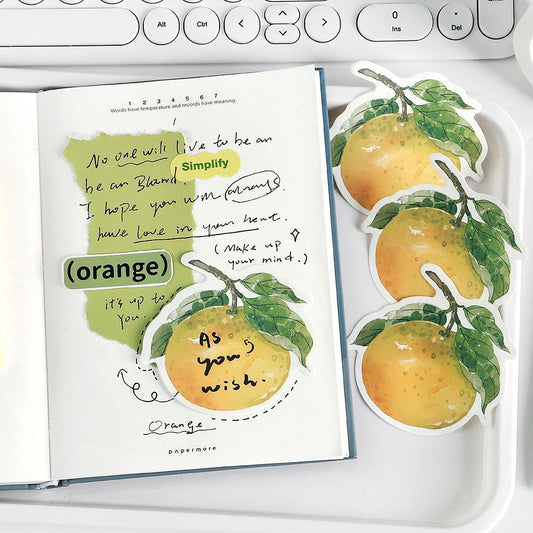 Alt
Ctrl
<
>
0
Ins
.
Del
1 2 3 4 5 6 7
Words have temperature and records have meaning
No one will live to be an
be an Bland.
Simplify
I hope you will always.
have love in your heart.
(Make up
your mind.)
(orange)
it's up to
you.
As
you
wish.
Orange
papermore